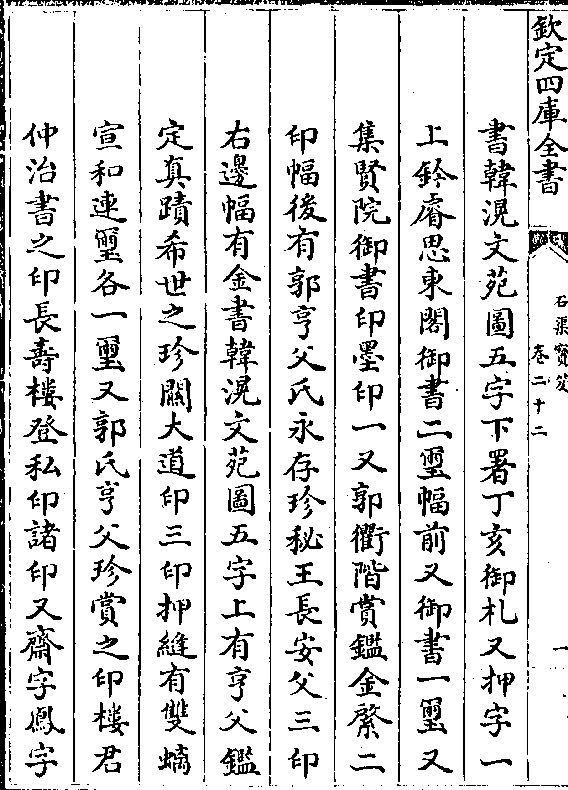 欽定四庫全書
石渠寶笈
卷二十二
一
書韓滉文苑圖五字下署丁亥御札又押字一
上鈐睿思東閣御書二璽幅前又御書一璽又
集賢院御書印墨印一又郭衢階賞鑑金綮二
印幅後有郭亨父氏永存珍秘王長安父三印
右邊幅有金書韓滉文苑圖五字上有亨父鑑
定真蹟希世之珍關大道印三印押縫有雙螭
宣和連璽各一璽又郭氏亨父珍賞之印樓君
仲治書之印長壽樓登私印諸印又齋字鳳字